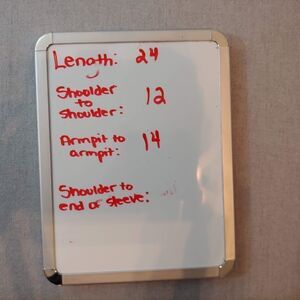 Length: 24
Shoolder
to
shoulder: 12
Armpit to
armpit: 14
Shoulder to
end of sleeve: